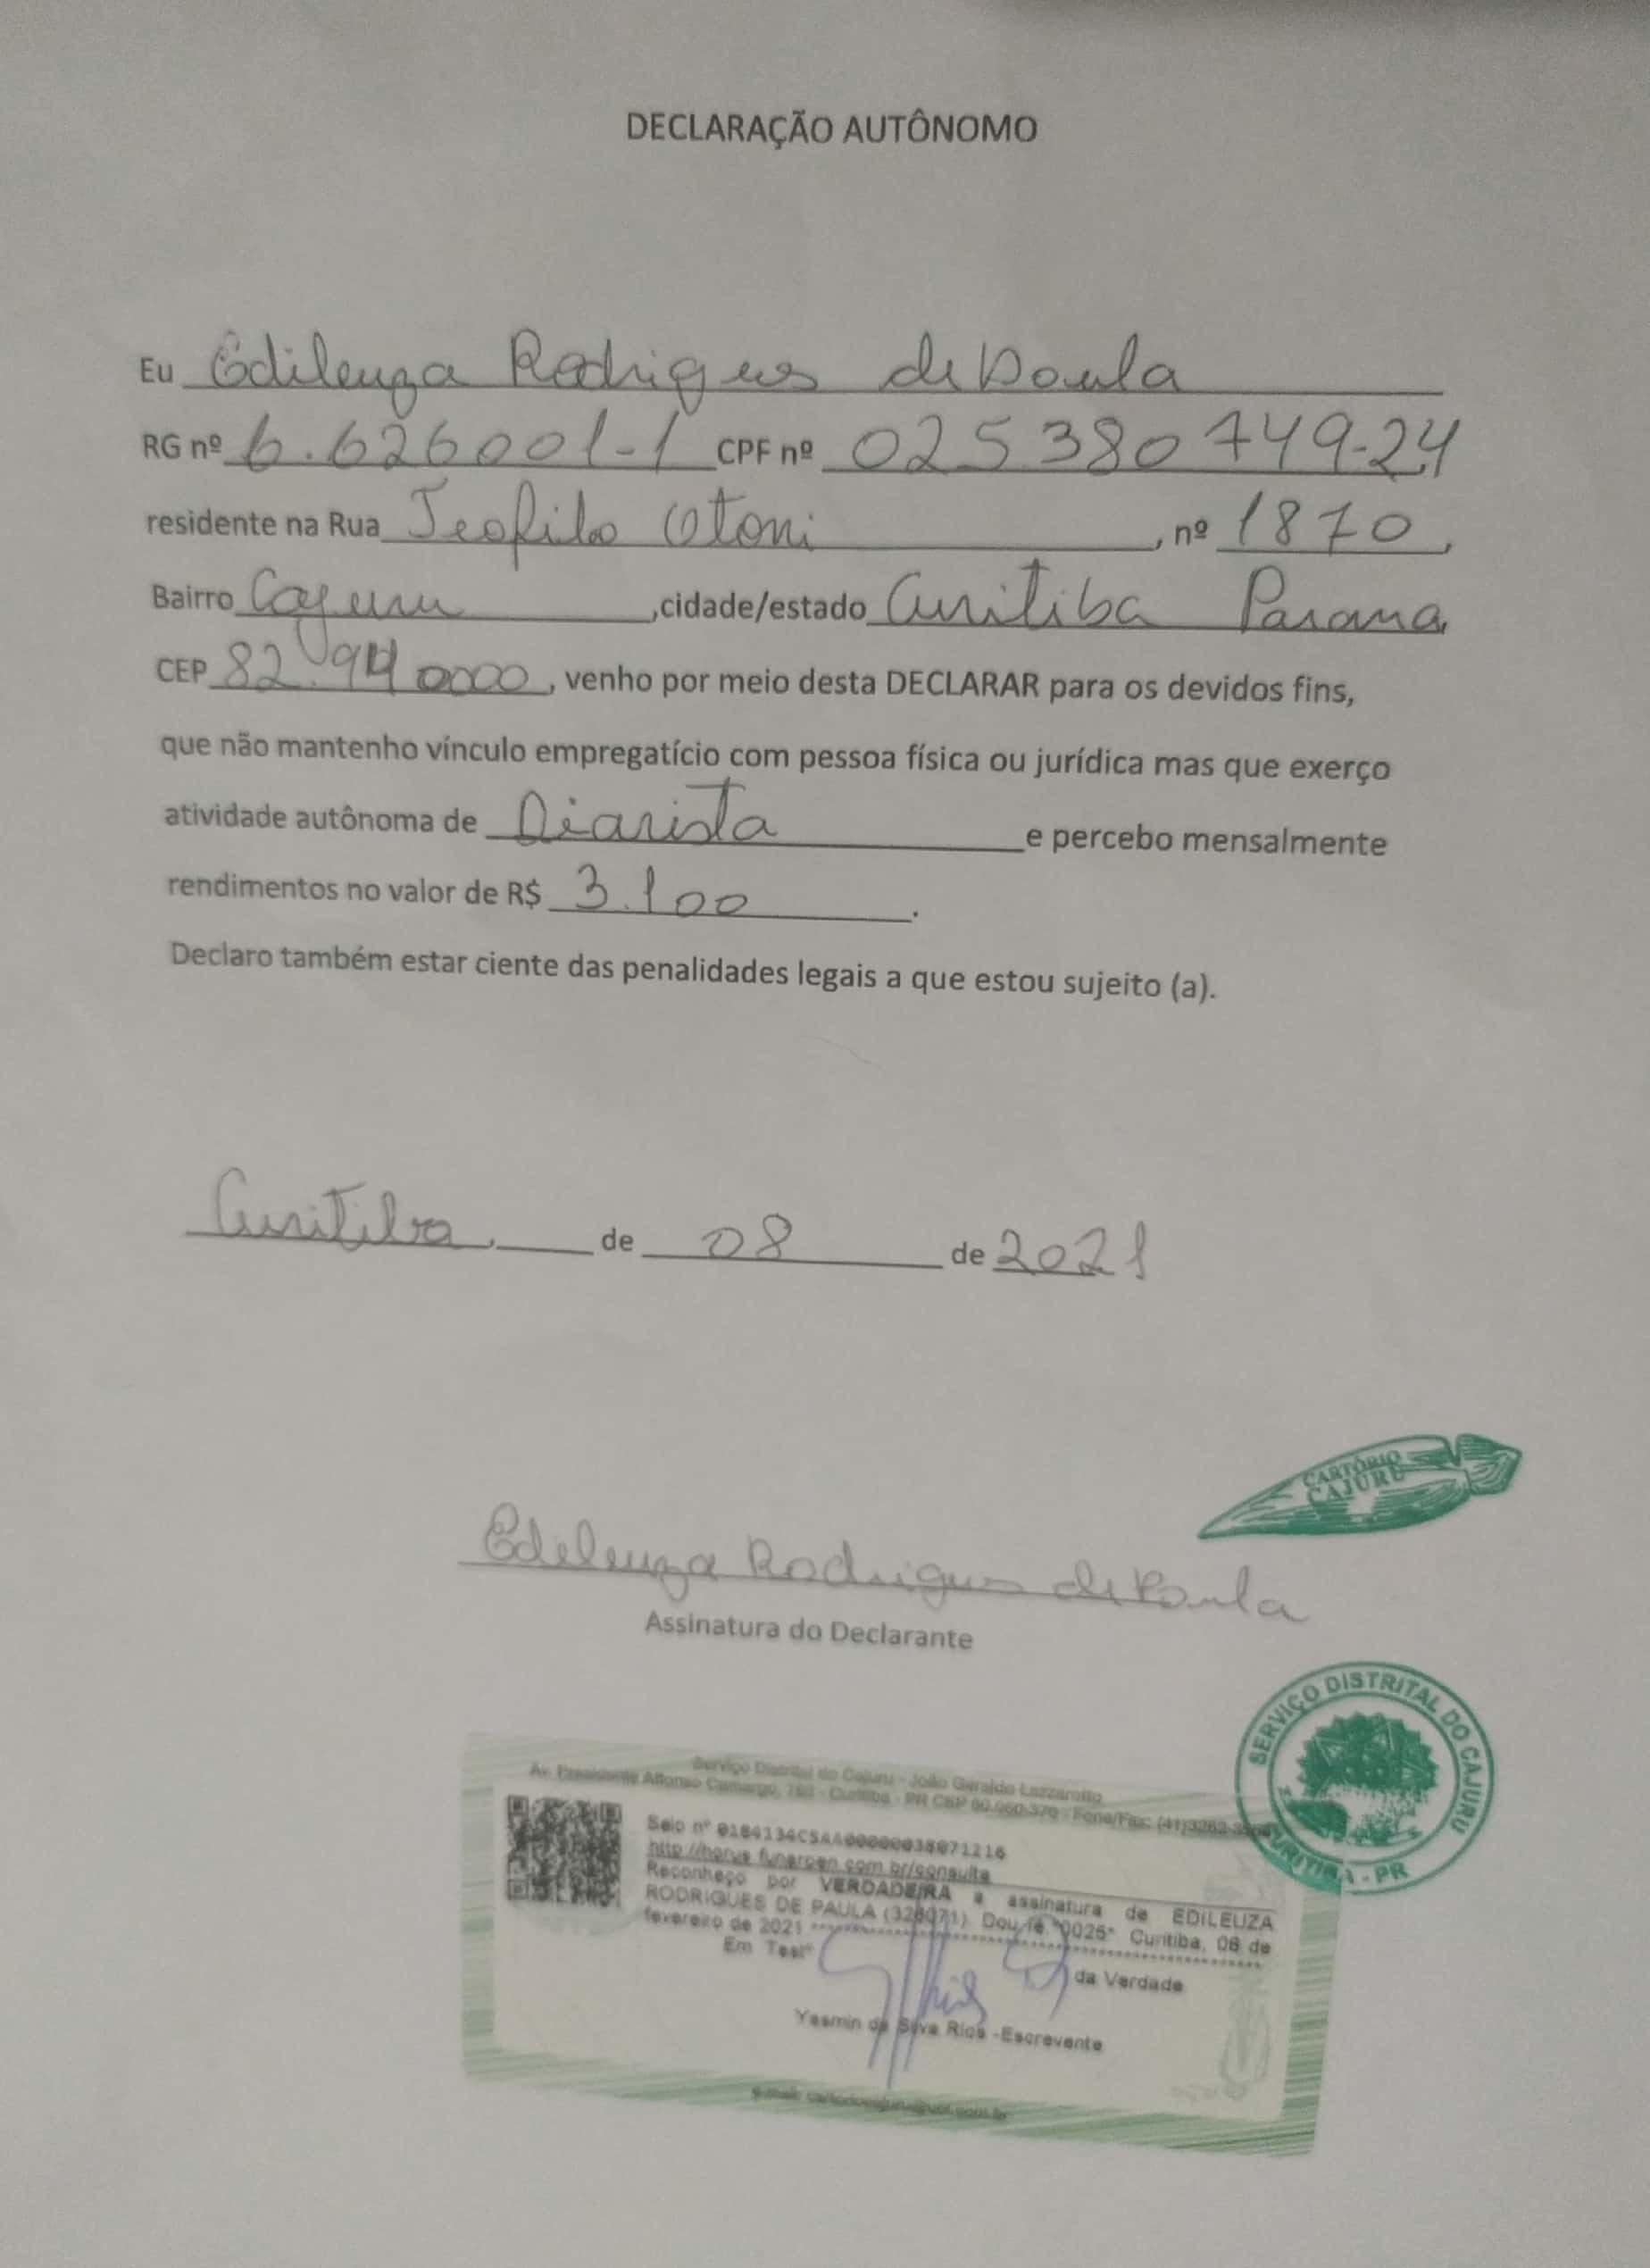 DECLARAÇÃO AUTÔNOMO
Eu Edileuza Rodrigues de Paula
RG nº 6.626001-1 CPF nº 025.380749-24
residente na Rua Teofilo Otoni, nº 1870,
Bairro Cajuru, cidade/estado Curitiba Parana,
CEP 82.940000, venho por meio desta DECLARAR para os devidos fins,
que não mantenho vínculo empregatício com pessoa física ou jurídica mas que exerço
atividade autônoma de Diarista e percebo mensalmente
rendimentos no valor de R$ 3.100.
Declaro também estar ciente das penalidades legais a que estou sujeito (a).
Curitiba, de 08 de 2021
CARTÓRIO
CAJURU
Edileuza Rodrigues de Paula
Assinatura do Declarante
SERVIÇO DISTRITAL DO CAJURU
CURITIBA - PR
Serviço Distrital do Cajuru - João Geraldo Lazzarotto
Av. Presidente Affonso Camargo, - Curitiba - PR CEP - Fone/Fax: (41)
Selo nº 0184134CSAA00000038071216
http://horus.funarpen.com.br/consulta
Reconheço por VERDADEIRA a assinatura de EDILEUZA
RODRIGUES DE PAULA (328071). Dou fé. *0026* Curitiba, 08 de
fevereiro de 2021
Em Testº da Verdade
Yasmin da Silva Rios - Escrevente